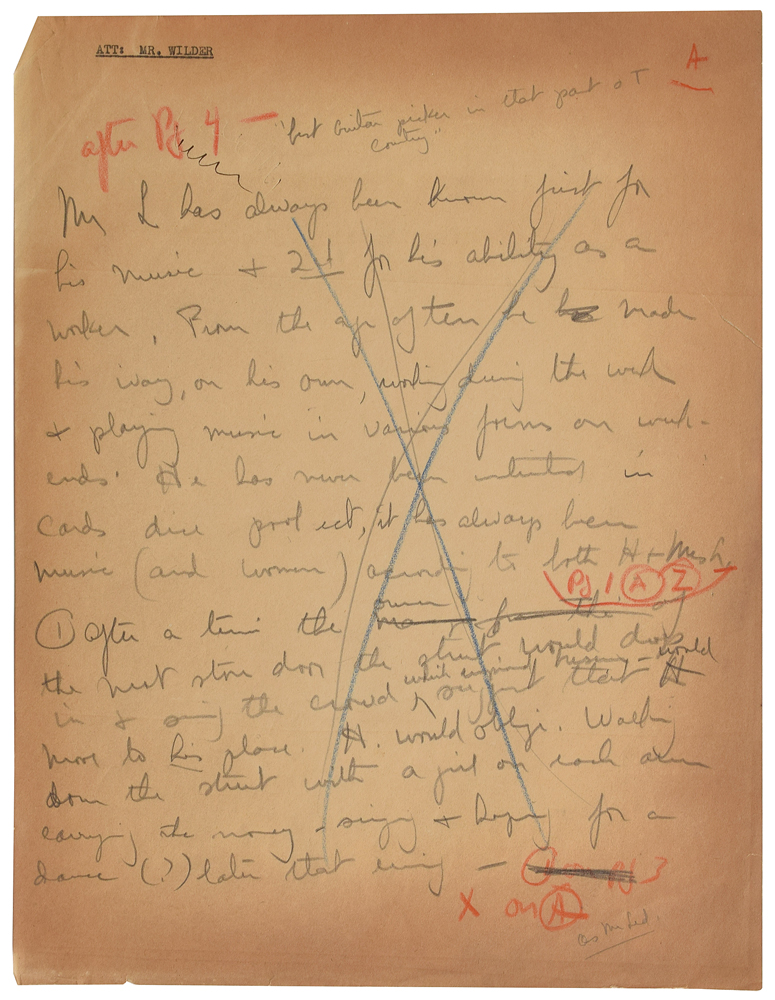 ATT: MR. WILDER
A
after Pg 4 — "best Guitar picker in that part of
country"
Mr L has always been known first for
his music + 2nd for his ability as a
worker. From the age of ten he made
his way, on his own, working during the week
+ playing music in various forms on week-
ends. He has never been interested in
cards dice pool ect, it has always been
music (and women) according to both H + Mrs L.
Pg 1 A 2
① after a time the owner
the next store down the street would drop
in + seeing the crowd which enjoyed suggest that H would
move to his place. H. would oblige. Walking
down the street with a girl on each arm
carrying the money - singing + hoping for a
dance (?) later that evening —
Pg 3
X on A
as marked